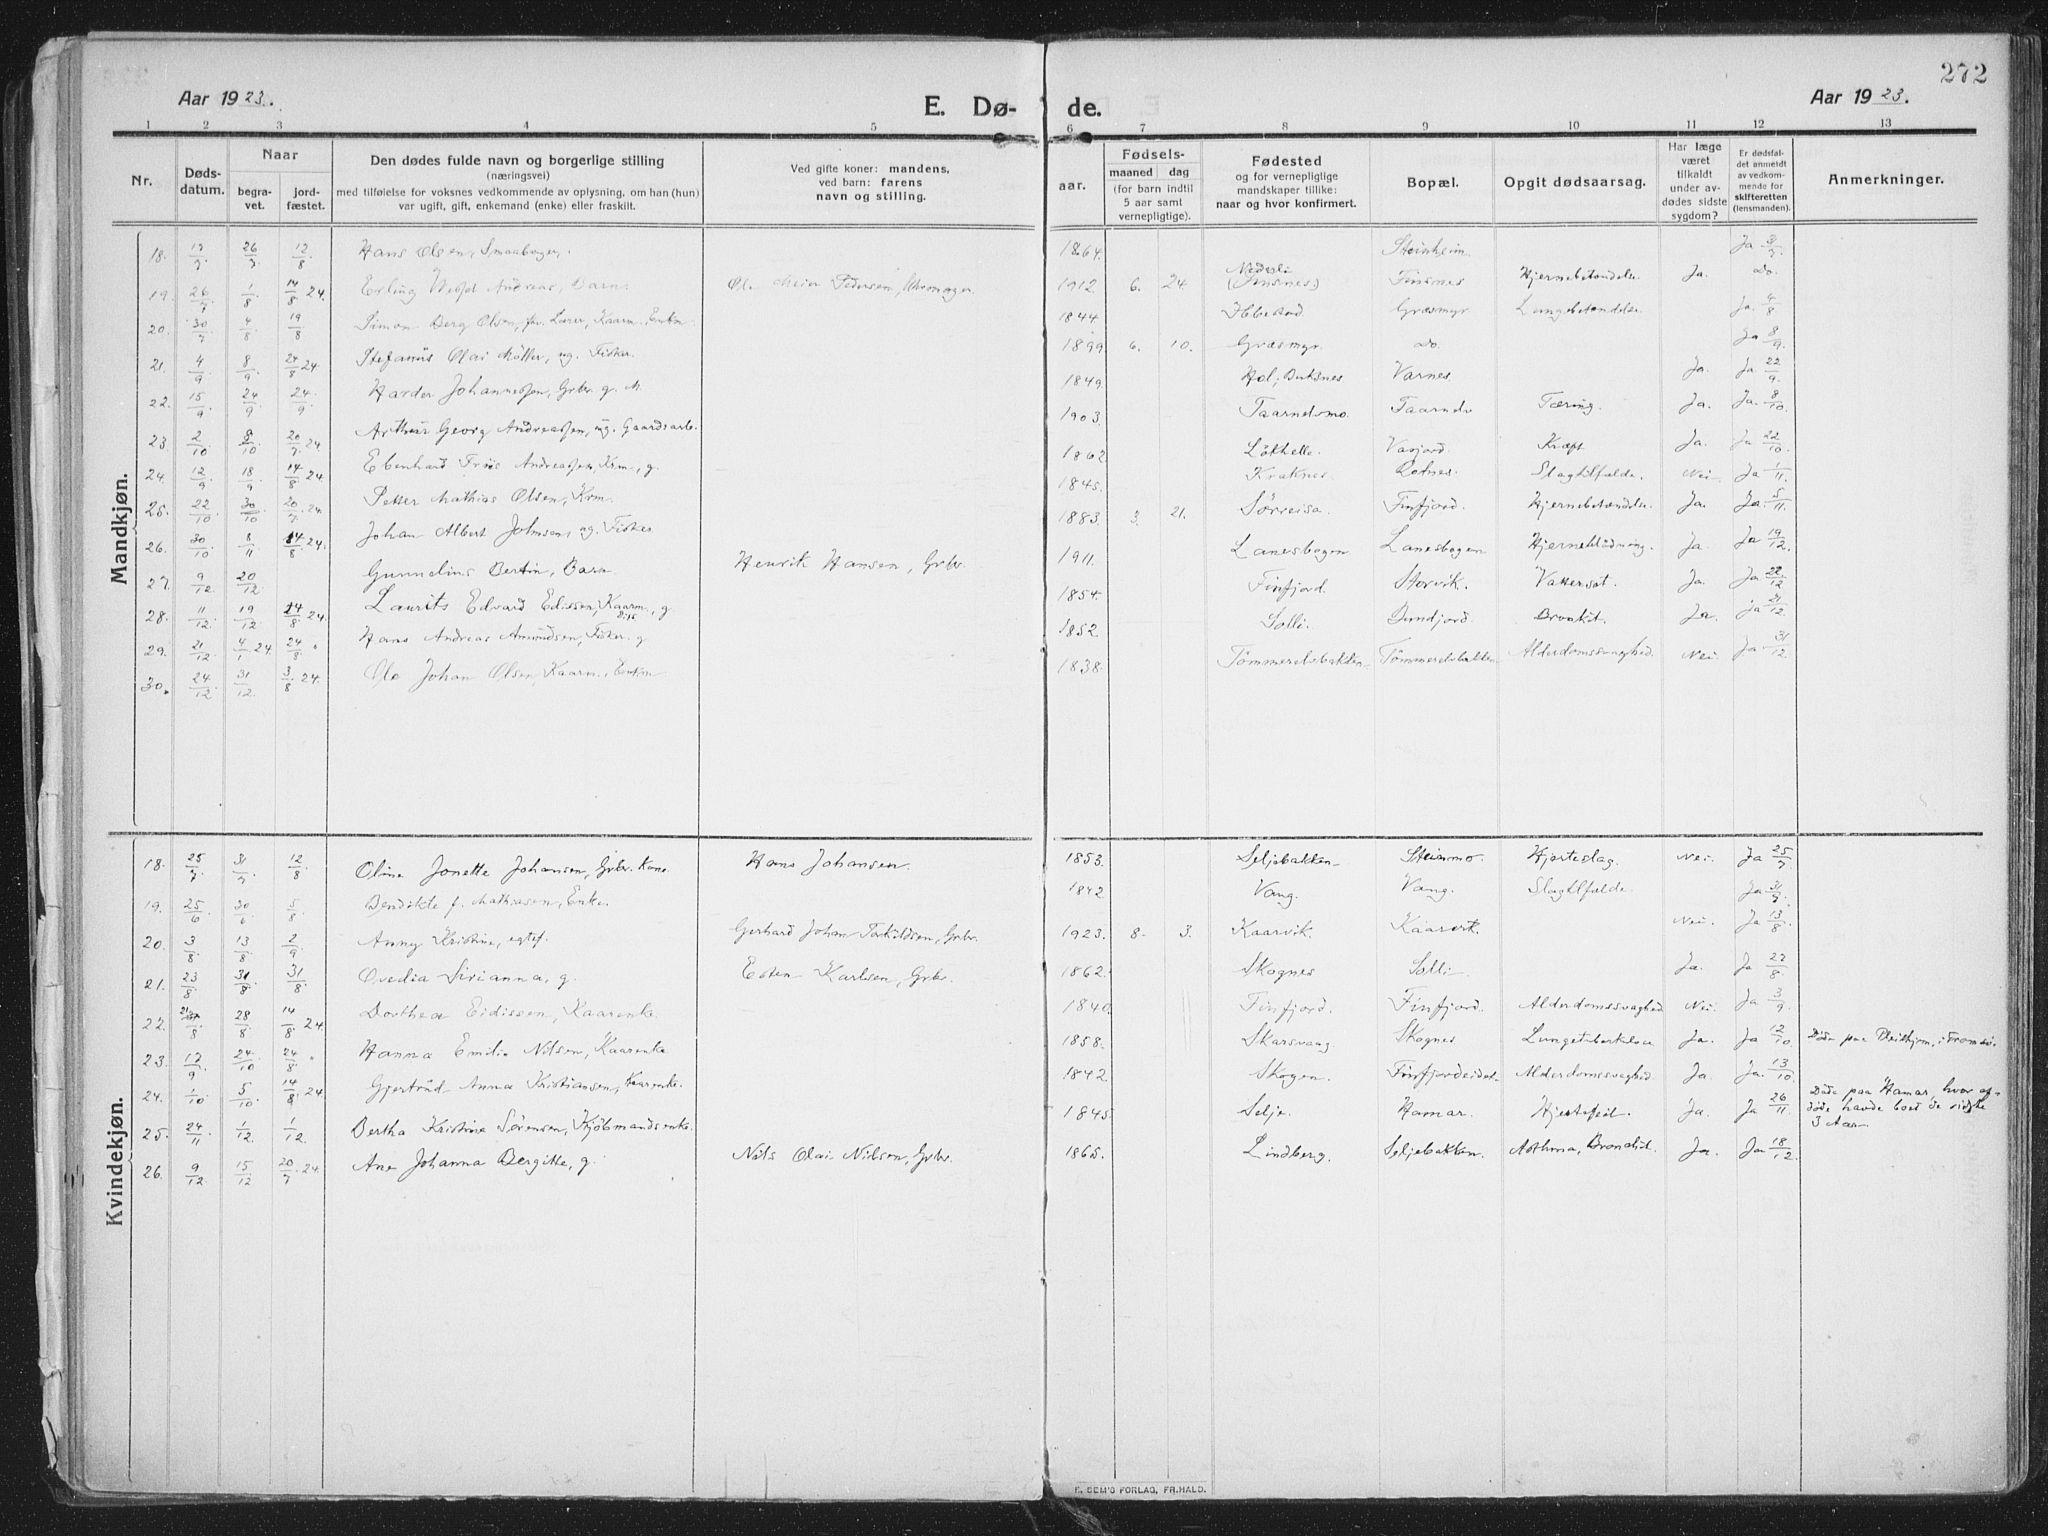 272
Aar 1923.
E. Dø- de.
Aar 1923.
1 2 3 4 5 6 7 8 9 10 11 12 13
Nr. Døds-datum. Naar begra-vet. jord-fæstet. Den dødes fulde navn og borgerlige stilling (næringsvei) med tilføielse for voksnes vedkommende av oplysning, om han (hun) var ugift, gift, enkemand (enke) eller fraskilt. Ved gifte koner: mandens, ved barn: farens navn og stilling. aar. Fødsels- maaned dag (for barn indtil 5 aar samt vernepligtige). Fødested og for vernepligtige mandskaper tillike: naar og hvor konfirmert. Bopæl. Opgit dødsaarsag. Har læge været tilkaldt under av-dødes sidste sygdom? Er dødsfal-det anmeldt av vedkom-mende for skifteretten (lensmanden). Anmerkninger.
Mandkjøn.
18. 26/7 12/8 Hans Olsen, 1864. Steinheim. Ja
19. 26/7 1/8 14/8 24. Erling Andreas, Barn Ole Meier Pedersen, 1912 6. 24 (Finsnes) Finsnes Hjernebetændelse Ja. do.
20. 30/7 4/8 19/8 Simon Berg Olsen, fhv. Lærer, Kaarm., Enkm 1844 Ibbestad Græsmyr Lungebetændelse Ja. 4/8
21. 4/9 8/9 24/8 24. Stefanus Olai Møller, ug. Fisker. 1899 6. 10. Græsmyr. do. Ja 8/9
22. 15/9 24/9 24/9. Harder Johannessen, Grbr. g. 1849. Hol, Berksnes Varnes Ja. Ja 22/9.
23 2/10 9/10 20/7 24. Arthur Georg Andreassen, ug. Gaardsarb. 1903. Taarnelvmo Taarnelv Tæring. Ja. Ja. 8/10
24. 12/9 18/9 14/8 24 Ebenhard Friis Andreassen, Krm., g. 1862 Løkhelle. Vasjord. Kræft Ja. Ja 22/10.
25. 22/10 30/10 20/7 24. Petter Mathias Olsen, Krm. 1845. Kraknes Rotnes. Slagtilfælde. Nei Ja 1/11.
26. 30/10 8/11 14/8 24. Johan Albert Johnsen, ug. Fisker 1883. 3. 21. Sørreisa. Finfjord. Hjernebetændelse Ja. Ja. 5/11.
27. 9/12 20/12 Gunnelius Bertin, Barn Henrik Hansen, Grbr. 1911. Lanesbogen Lanesbogen Hjerneblødning. Ja. Ja 19/12.
28. 11/12. 19/12 14/8 24. Laurits Edvard Edissen, Kaarm., g. 1854. Finfjord. Storvik. Vattersot. Ja. Ja 22/12
29. 21/12. 4/1 24. 24/8 " Hans Andreas Amundsen, Fisker. g 1852. Solli. Bundjord. Bronkit. Ja. ja 21/12.
30. 24/12 31/12 3/8 24. Ole Johan Olsen, Kaarm., Enkm 1838. Tømmerelvbakken Tømmerelvbakken Alderdomssvaghed Nei. Ja 31/12
Kvindekjøn.
18. 25/7 31/7. 12/8 Oline Jonette Johansen, Grbr. Kone. Hans Johansen. 1853. Seljebakken Steinmo. Hjerteslag. Nei Ja 25/7
19. 25/6 30/6 5/8 Bendikte f. Mathiasen, Enke. 1842 Vang. Vang. Slagtilfælde. Ja
20. 3/8 13/8 2/9 Anny Kristine, egtef. Gerhard Johan Torkildsen, Grbr. 1923. 8. 3. Kaarvik. Kaarvik. Nei. Ja 13/8
21. 23/8. 31/8. 31/8. Ovedia Sirianna, g. Esten Karlsen, Grbr. 1862. Skognes Solli. Ja. Ja 27/8.
22. 21/8 28/8 14/8 24. Dorthea Eidissen, Kaarenke. 1840. Finfjord. Finfjord. Alderdomssvaghed Nei. Ja 3/9.
23. 17/9. 24/10 24/8 " Hanna Emilie Nilsen, Kaarenke 1858. Skarsvaag Skognes Lungetuberkulose Ja. Ja 12/10 Døde paa Pleiehjem, i Tromsø.
24. 1/10 5/10 14/8 24 Gjertrud Anna Kristiansen, Kaarenke. 1842. Skogen. Finfjordeidet Alderdomssvaghed. Ja Ja. 13/10.
25. 24/11 1/12. 1/12. Bertha Kristine Sørensen, Kjøbmandsenke. 1845 Selje. Hamar. Hjertefeil. Ja. Ja 26/11. Døde paa Hamar, hvor af-døde havde boet de sidste 3 Aar.
26. 9/12 15/12 20/7 24. Ane Johanna Bergitte, g. Nils Olai Nilsen, Grbr. 1865. Lindberg. Seljebakken. Asthma, Bronchit. Ja. Ja 18/12.
E. SEM'S FORLAG, FR.HALD.